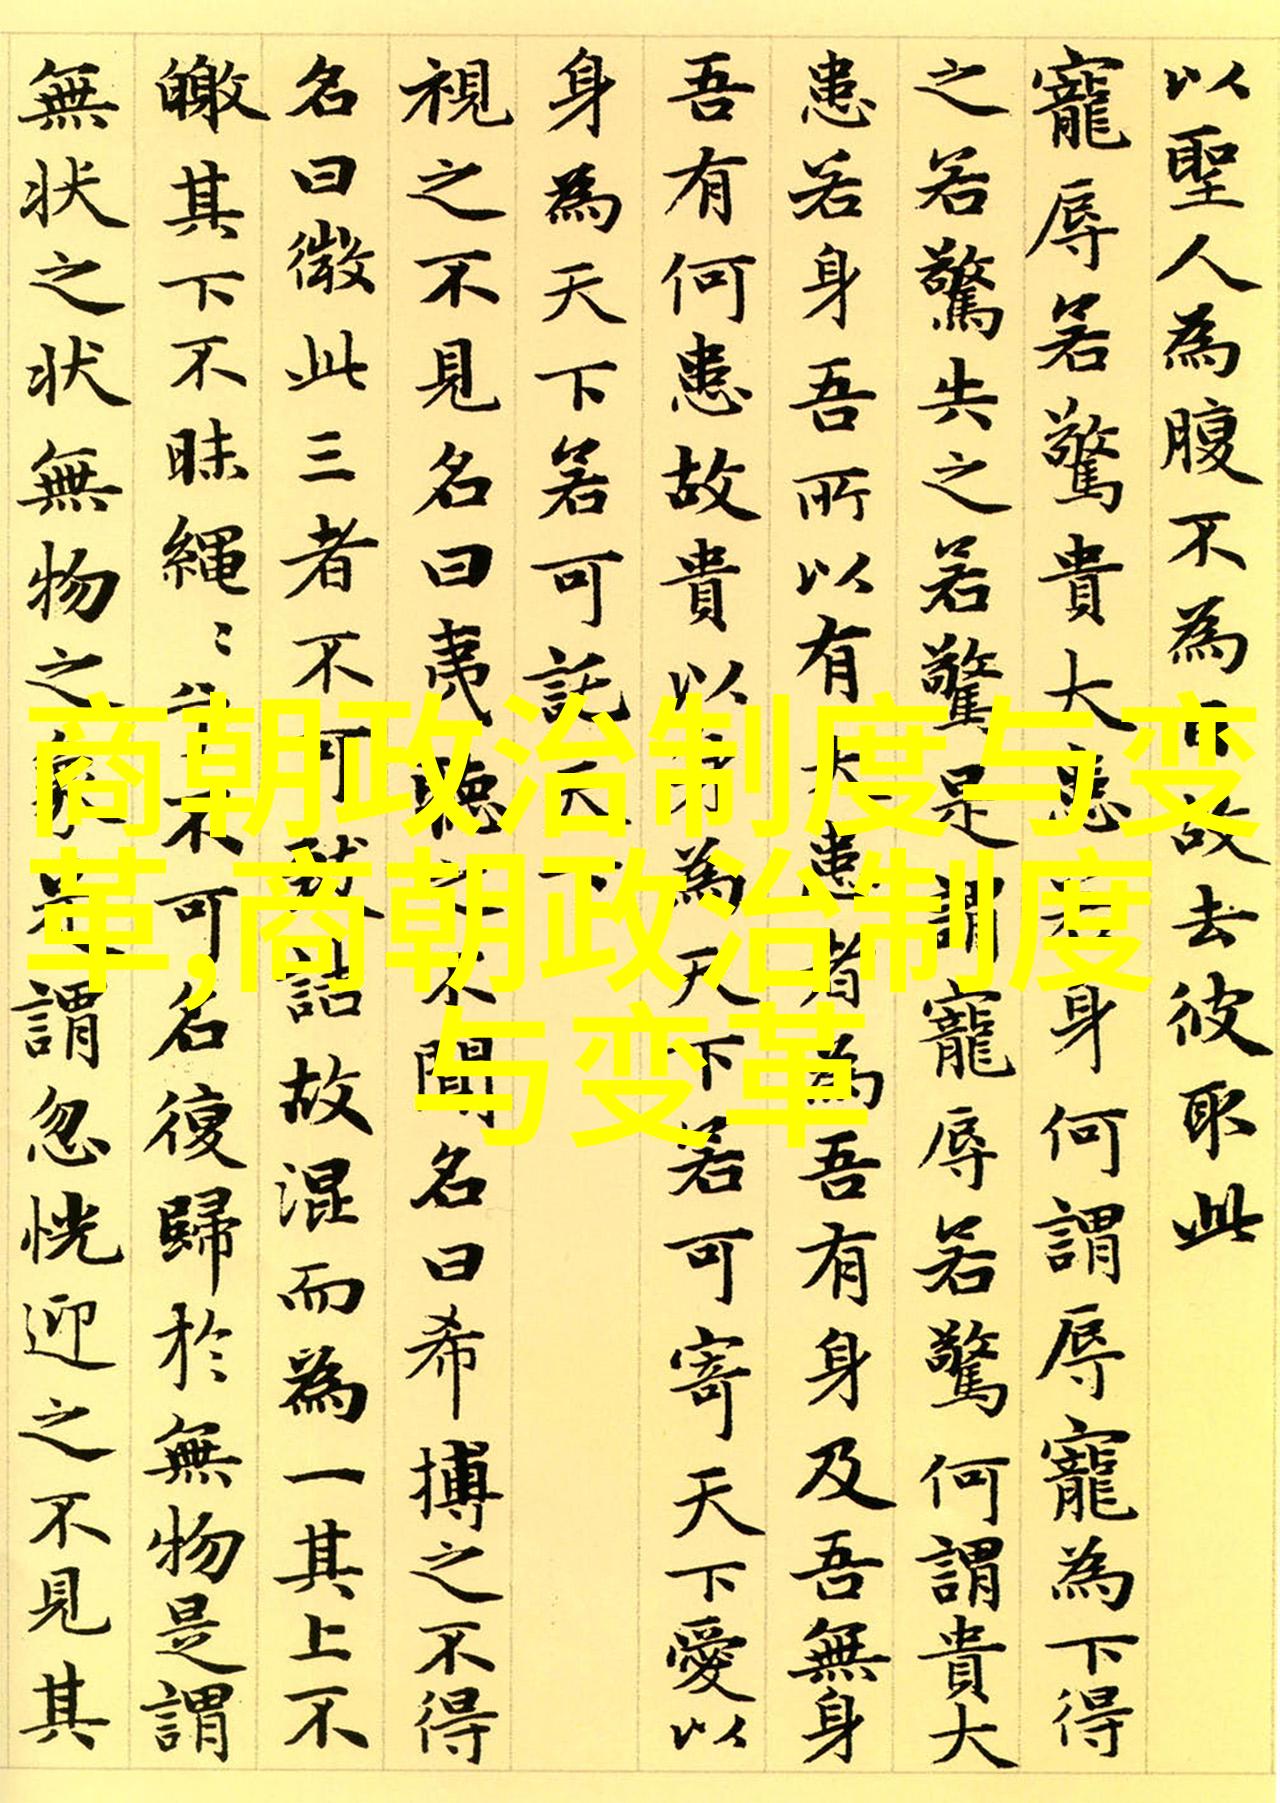 以聖人為腹不為目故去彼取此
寵辱若驚貴大患若身何謂辱寵為下得
之若驚失之若驚是謂寵辱若驚何謂貴大
患若身吾所以有大患者為吾有身及吾無身
吾有何患故貴以身為天下若可寄天下愛以
身為天下若可託天下
視之不見名曰夷聽之不聞名曰希搏之不得
名曰微此三者不可致詰故混而為一其上不
皦其下不昧繩〻兮不可名復歸於無物是謂
無状之状無物之象是謂忽恍迎之不見其
商朝政治制度与变
革,商朝政治制度
与变革